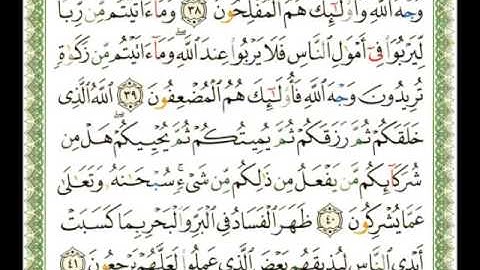 وَجْهَ ٱللَّهِ وَأُو۟لَٰٓئِكَ هُمُ ٱلْمُفْلِحُونَ ٣٨ وَمَآ ءَاتَيْتُم مِّن رِّبًا
لِّيَرْبُوَا۟ فِىٓ أَمْوَٰلِ ٱلنَّاسِ فَلَا يَرْبُوا۟ عِندَ ٱللَّهِ ۖ وَمَآ ءَاتَيْتُم مِّن زَكَوٰةٍ
تُرِيدُونَ وَجْهَ ٱللَّهِ فَأُو۟لَٰٓئِكَ هُمُ ٱلْمُضْعِفُونَ ٣٩ ٱللَّهُ ٱلَّذِى
خَلَقَكُمْ ثُمَّ رَزَقَكُمْ ثُمَّ يُمِيتُكُمْ ثُمَّ يُحْيِيكُمْ ۖ هَلْ مِن
شُرَكَآئِكُم مَّن يَفْعَلُ مِن ذَٰلِكُم مِّن شَىْءٍ ۚ سُبْحَٰنَهُۥ وَتَعَٰلَىٰ
عَمَّا يُشْرِكُونَ ٤٠ ظَهَرَ ٱلْفَسَادُ فِى ٱلْبَرِّ وَٱلْبَحْرِ بِمَا كَسَبَتْ
أَيْدِى ٱلنَّاسِ لِيُذِيقَهُم بَعْضَ ٱلَّذِى عَمِلُوا۟ لَعَلَّهُمْ يَرْجِعُونَ ٤١